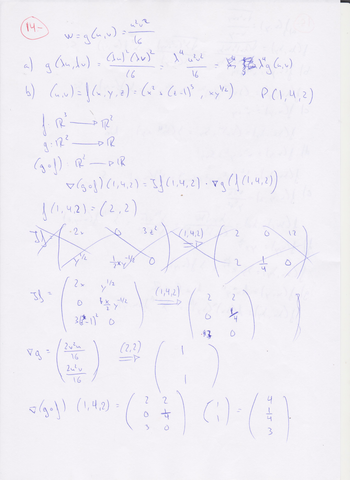 14-
w = g(u,v) = u²v²/16
a) g(λu,λv) = (λu)²(λv)²/16 = λ⁴ u²v²/16 = λ⁴g(u,v)
b) (u,v) = f(x,y,z) = (x²+(z-1)³, xy^1/2) P(1,4,2)
f: ℝ³ → ℝ²
g: ℝ² → ℝ
(g∘f) ℝ³ → ℝ
∇(g∘f)(1,4,2) = Jf(1,4,2) · ∇g(f(1,4,2))
f(1,4,2) = (2,2)
Jf = (2x 0 3z² (1,4,2) ⇒ (2 0 12
y^1/2 ½xy^-1/2 0) 2 ¼ 0)
Jf = (2x y^1/2 (1,4,2) ⇒ (2 2
0 x/2 y^-1/2 0 ¼
3(z-1)² 0) 3 0)
∇g = (2v²u/16 (2,2) ⇒ (1
2u²v/16) 1)
∇(g∘f) (1,4,2) = (2 2 (1 (4
0 ¼ 1) = ¼
3 0) 3)